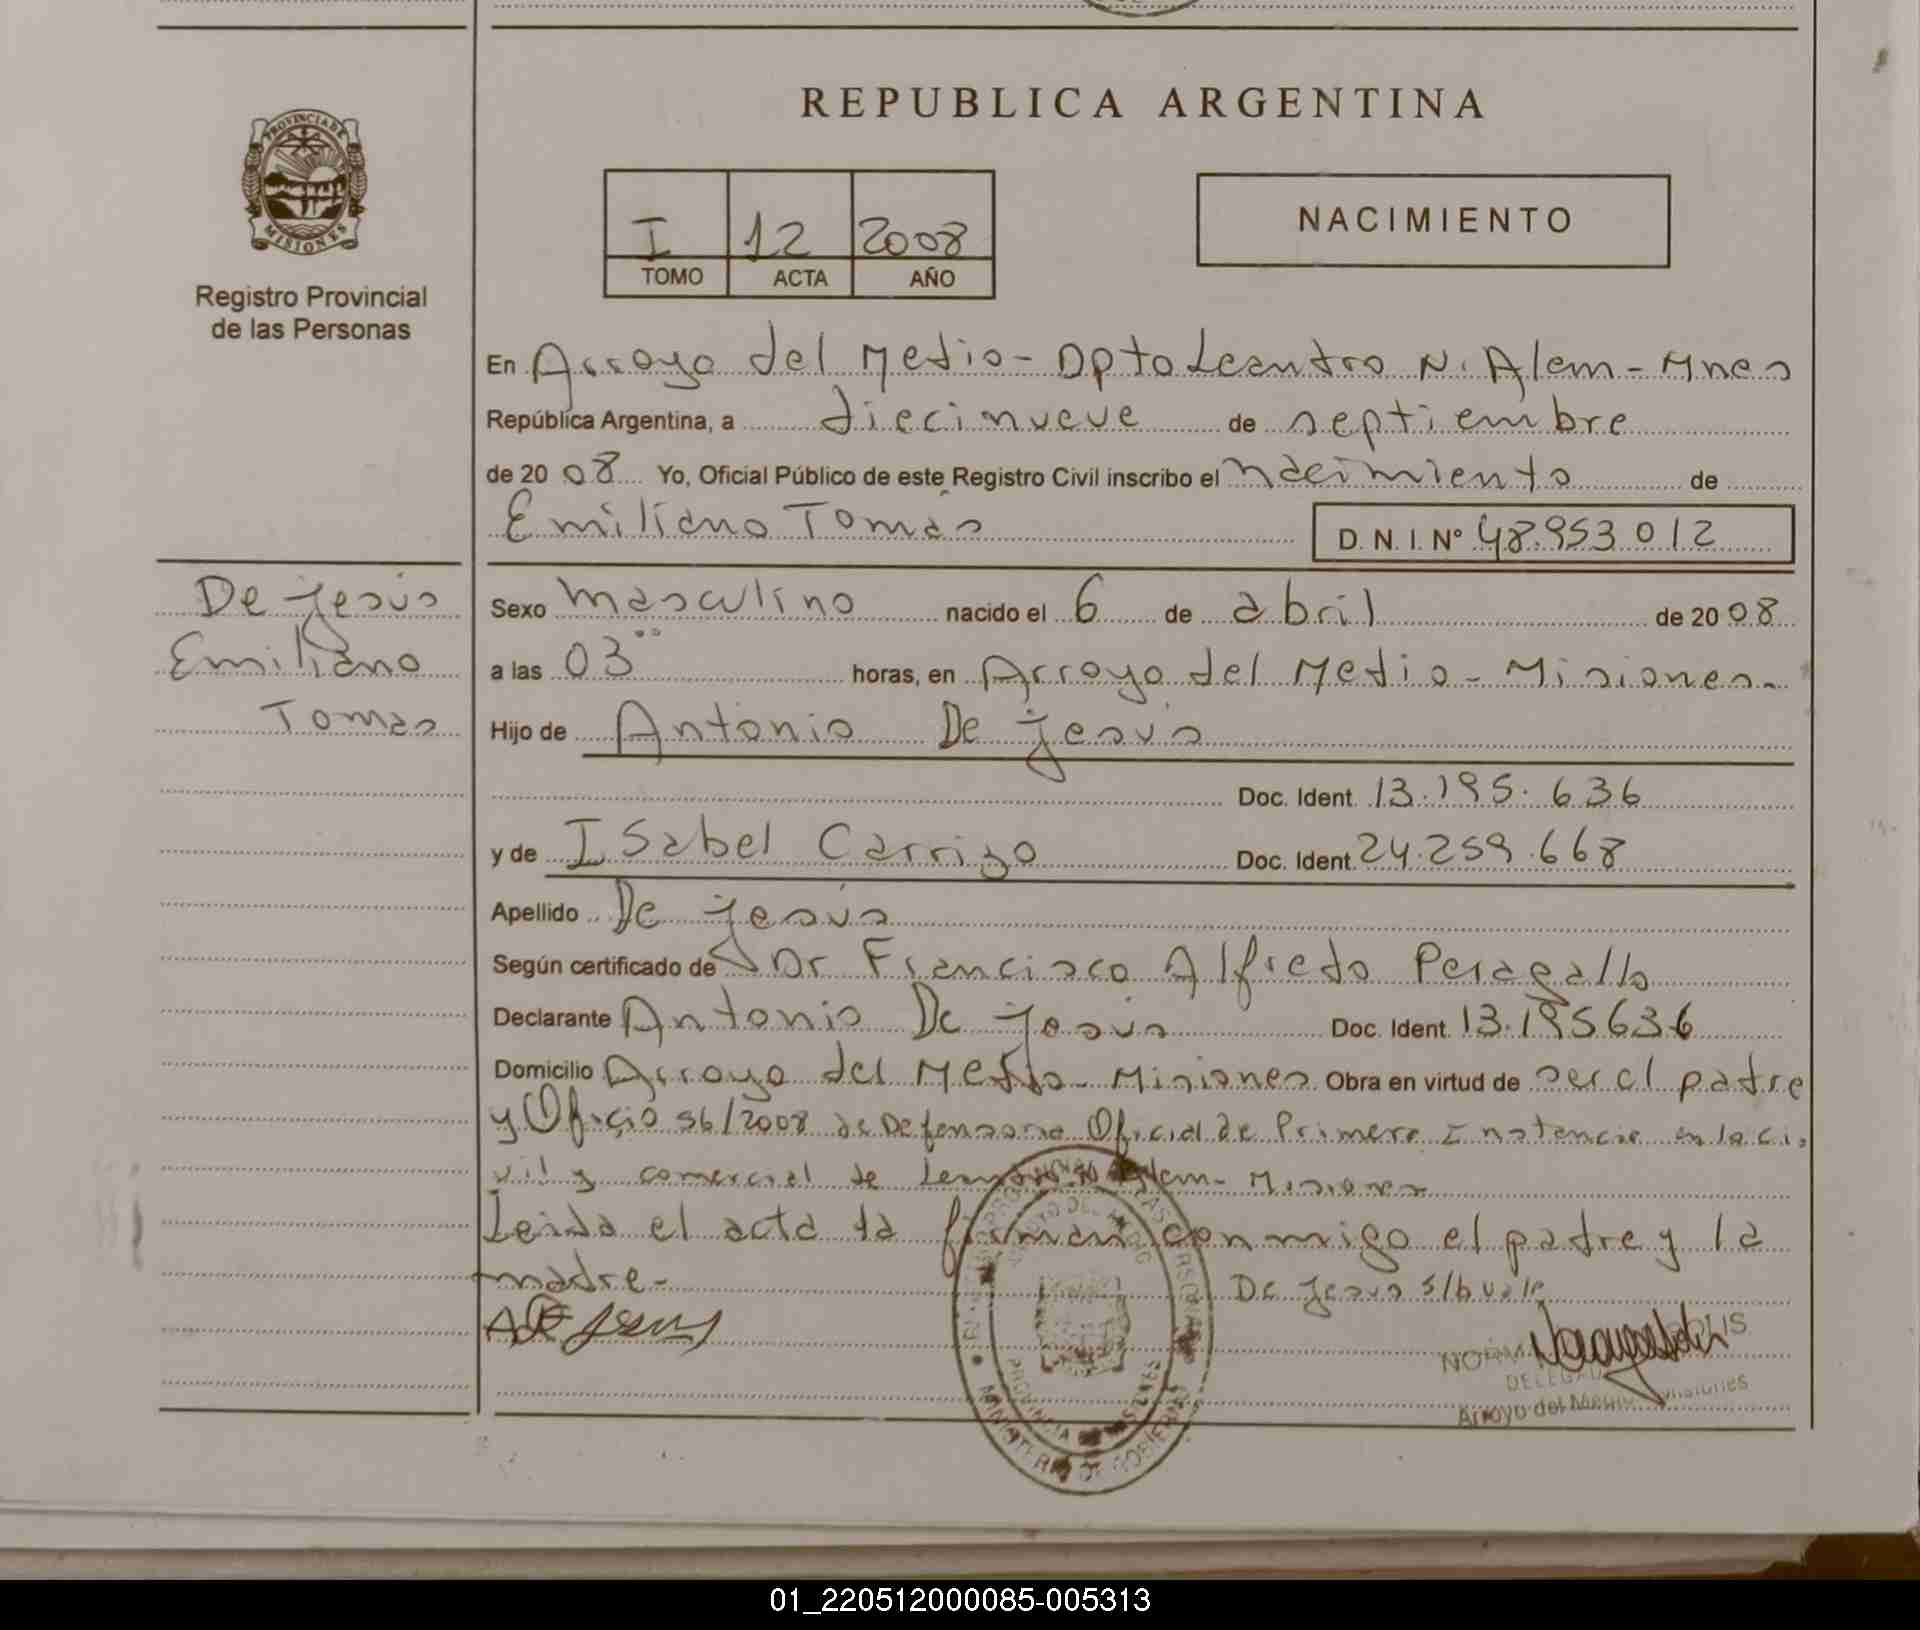 REPUBLICA ARGENTINA
PROVINCIA DE MISIONES
Registro Provincial
de las Personas
I 12 2008
TOMO ACTA AÑO
NACIMIENTO
En Arroyo del Medio - Dpto Leandro N. Alem - Mnes
República Argentina, a diecinueve de septiembre
de 20 08 Yo, Oficial Público de este Registro Civil inscribo el nacimiento de
Emiliano Tomás
D. N. I. Nº 48.953 012
De Jesús
Emiliano
Tomas
Sexo masculino nacido el 6 de abril de 20 08
a las 03°° horas, en Arroyo del Medio - Misiones -
Hijo de Antonio De Jesús
Doc. Ident. 13.195.636
y de ISabel Carrizo Doc. Ident. 24.259.668
Apellido De Jesús
Según certificado de Dr Francisco Alfredo Peragallo
Declarante Antonio De Jesús Doc. Ident. 13.195636
Domicilio Arroyo del Medio - Misiones Obra en virtud de ser el padre
y Oficio 56/2008 de Defensoria Oficial de Primera Instancia en lo ci
vil y comercial de Leandro N Alem - Misiones
Leida el acta la firman conmigo el padre y la
madre -
De Jesus s/b vale
A De Jesus
MINISTERIO DE GOBIERNO
PROVINCIA
NORM
DELEGAD
Arroyo del Medio Misiones
01_220512000085-005313